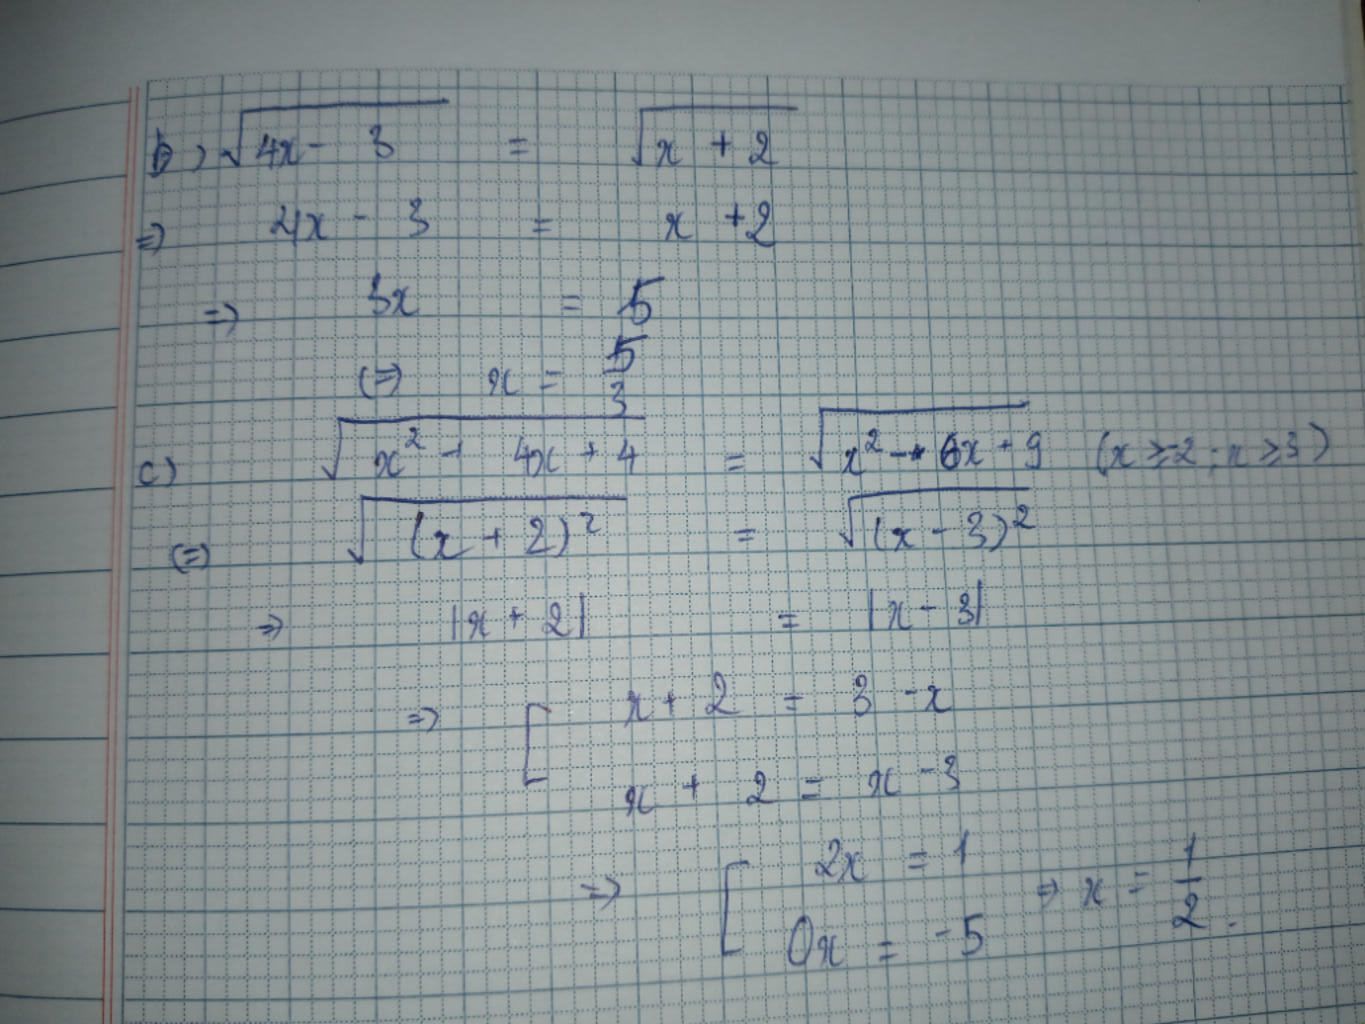 b) √(4x - 3) = √(x + 2)
=> 4x - 3 = x + 2
=> 3x = 5
<=> x = 5/3
c) √(x² + 4x + 4) = √(x² - 6x + 9) (x ≥ -2 ; x ≥ 3)
<=> √((x + 2)²) = √((x - 3)²)
=> |x + 2| = |x - 3|
=> [ x + 2 = 3 - x
x + 2 = x - 3
=> [ 2x = 1 => x = 1/2.
0x = -5